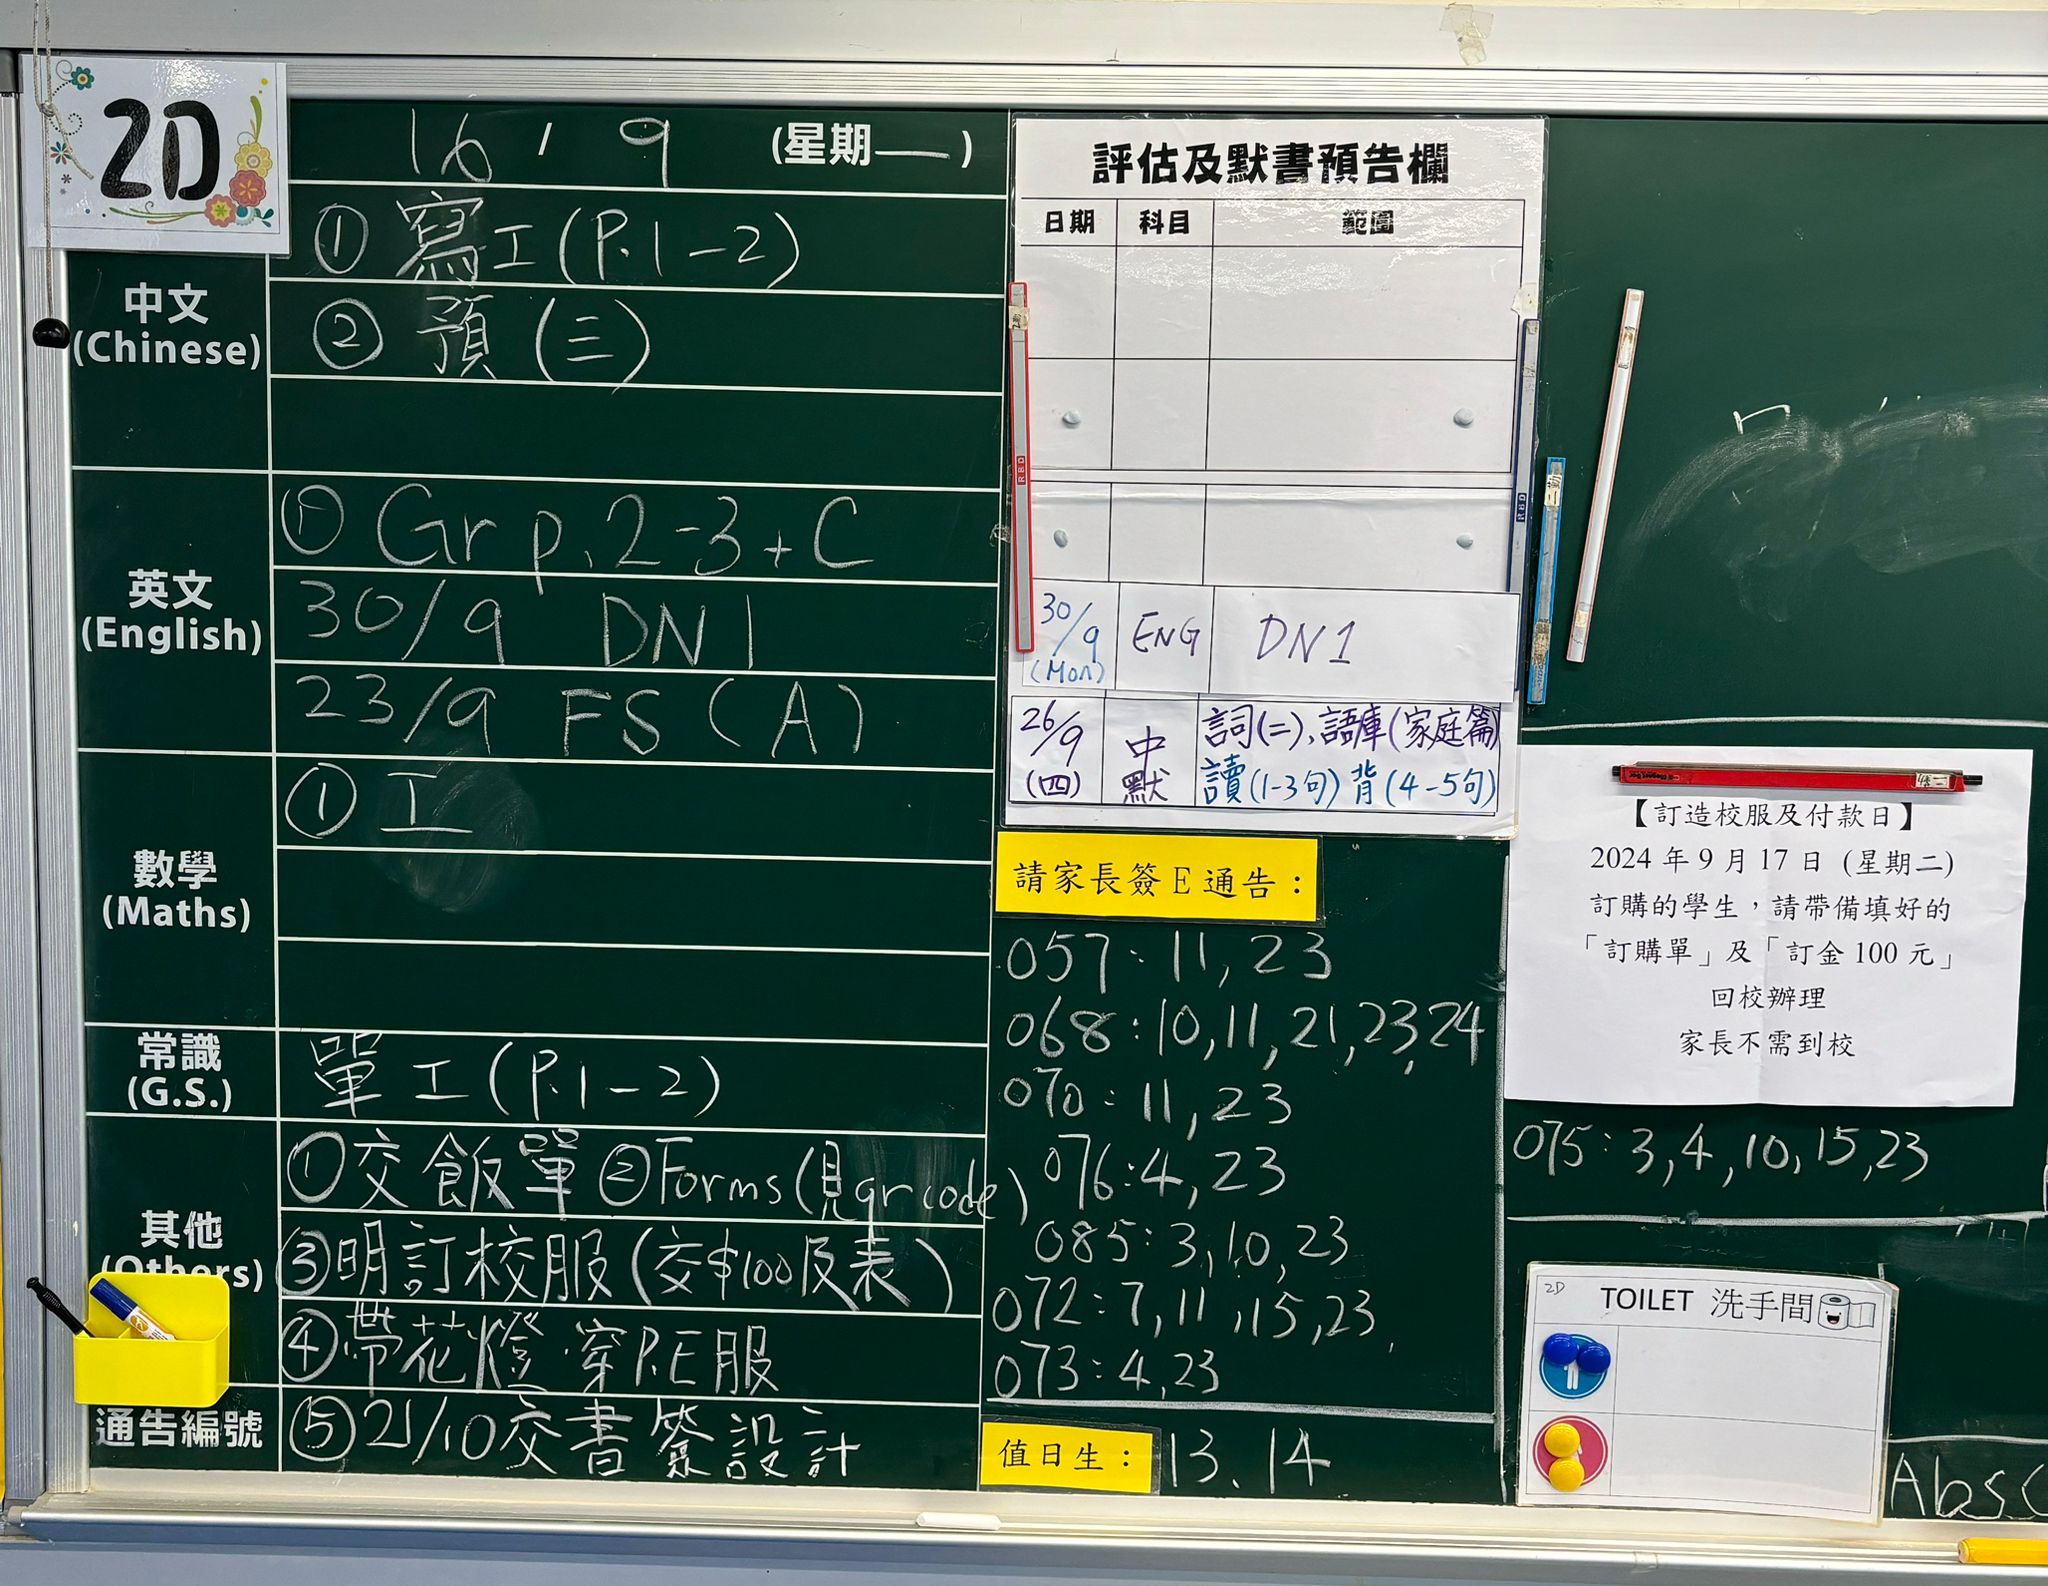 2D
16 / 9 (星期一)
中文
(Chinese)
① 寫工(P.1-2)
② 預(三)
英文
(English)
① Gr p.2-3 + C
30/9 DN1
23/9 FS(A)
數學
(Maths)
① 工
常識
(G.S.)
單工(P.1-2)
其他
(Others)
①交飯單 ②Forms(見qr code)
③明訂校服(交$100及表)
④帶花燈.穿P.E服
通告編號
⑤21/10交書簽設計
評估及默書預告欄
日期 科目 範圍
30/9 (Mon) ENG DN1
26/9 (四) 中默 詞(二)、語庫(家庭篇)
讀(1-3句) 背(4-5句)
請家長簽E通告:
057: 11, 23
068: 10, 11, 21, 23, 24
070: 11, 23
076: 4, 23
085: 3, 10, 23
072: 7, 11, 15, 23
073: 4, 23
值日生: 13、14
【訂造校服及付款日】
2024 年 9 月 17 日 (星期二)
訂購的學生,請帶備填好的
「訂購單」及「訂金 100 元」
回校辦理
家長不需到校
075: 3, 4, 10, 15, 23
2D
TOILET 洗手間